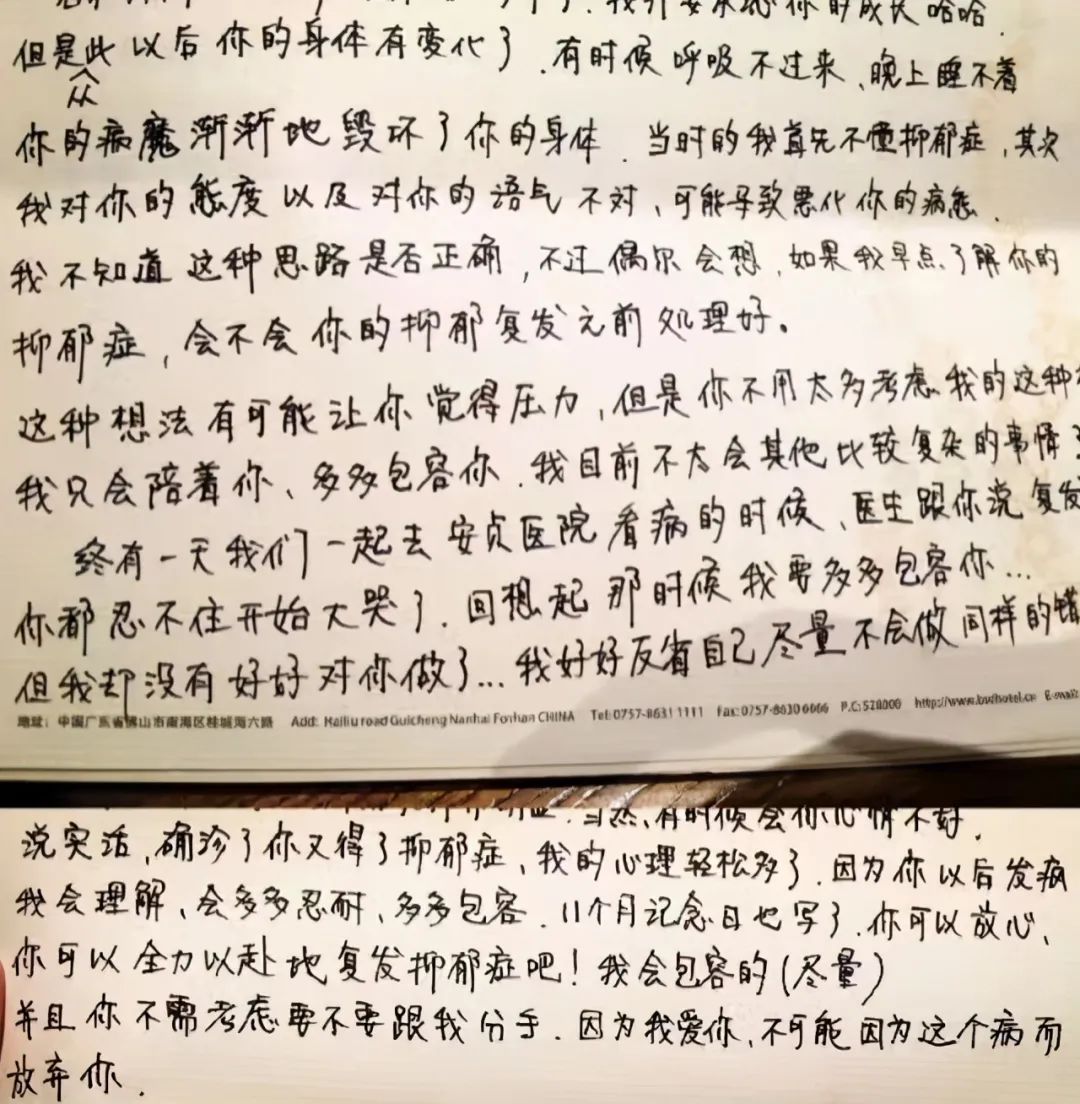 我并要永远你的成长哈哈.
但是从此以后你的身体有变化了.有时候呼吸不过来、晚上睡不着
你的病魔渐渐地毁坏了你的身体.当时的我首先不懂抑郁症,其次
我对你的态度以及对你的语气不对、可能导致恶化你的病态.
我不知道这种思路是否正确,不过偶尔会想,如果我早点了解你的
抑郁症,会不会你的抑郁复发之前处理好。
这种想法有可能让你觉得压力,但是你不用太多考虑我的这种
我只会陪着你、多多包容你.我目前不太会其他比较复杂的事情
终有一天我们一起去安贞医院看病的时候、医生跟你说复发
你都忍不住开始大哭了.回想起那时候我要多多包容你...
但我却没有好好对你做了...我好好反省自己尽量不会做同样的错
地址:中国广东省佛山市南海区桂城海六路 Add: Hailiu road Guicheng Nanhai Foshan CHINA Tel:0757-8631 1111 Fax:0757-8630 6666 P.C:528000
当然、有时候会你心情不好.
说实话,确诊了你又得了抑郁症、我的心理轻松多了.因为你以后发病
我会理解、会多多忍耐、多多包容.11个月记念日也写了.你可以放心、
你可以全力以赴地复发抑郁症吧!我会包容的(尽量)
并且你不需考虑要不要跟我分手.因为我爱你、不可能因为这个病而
放弃你.